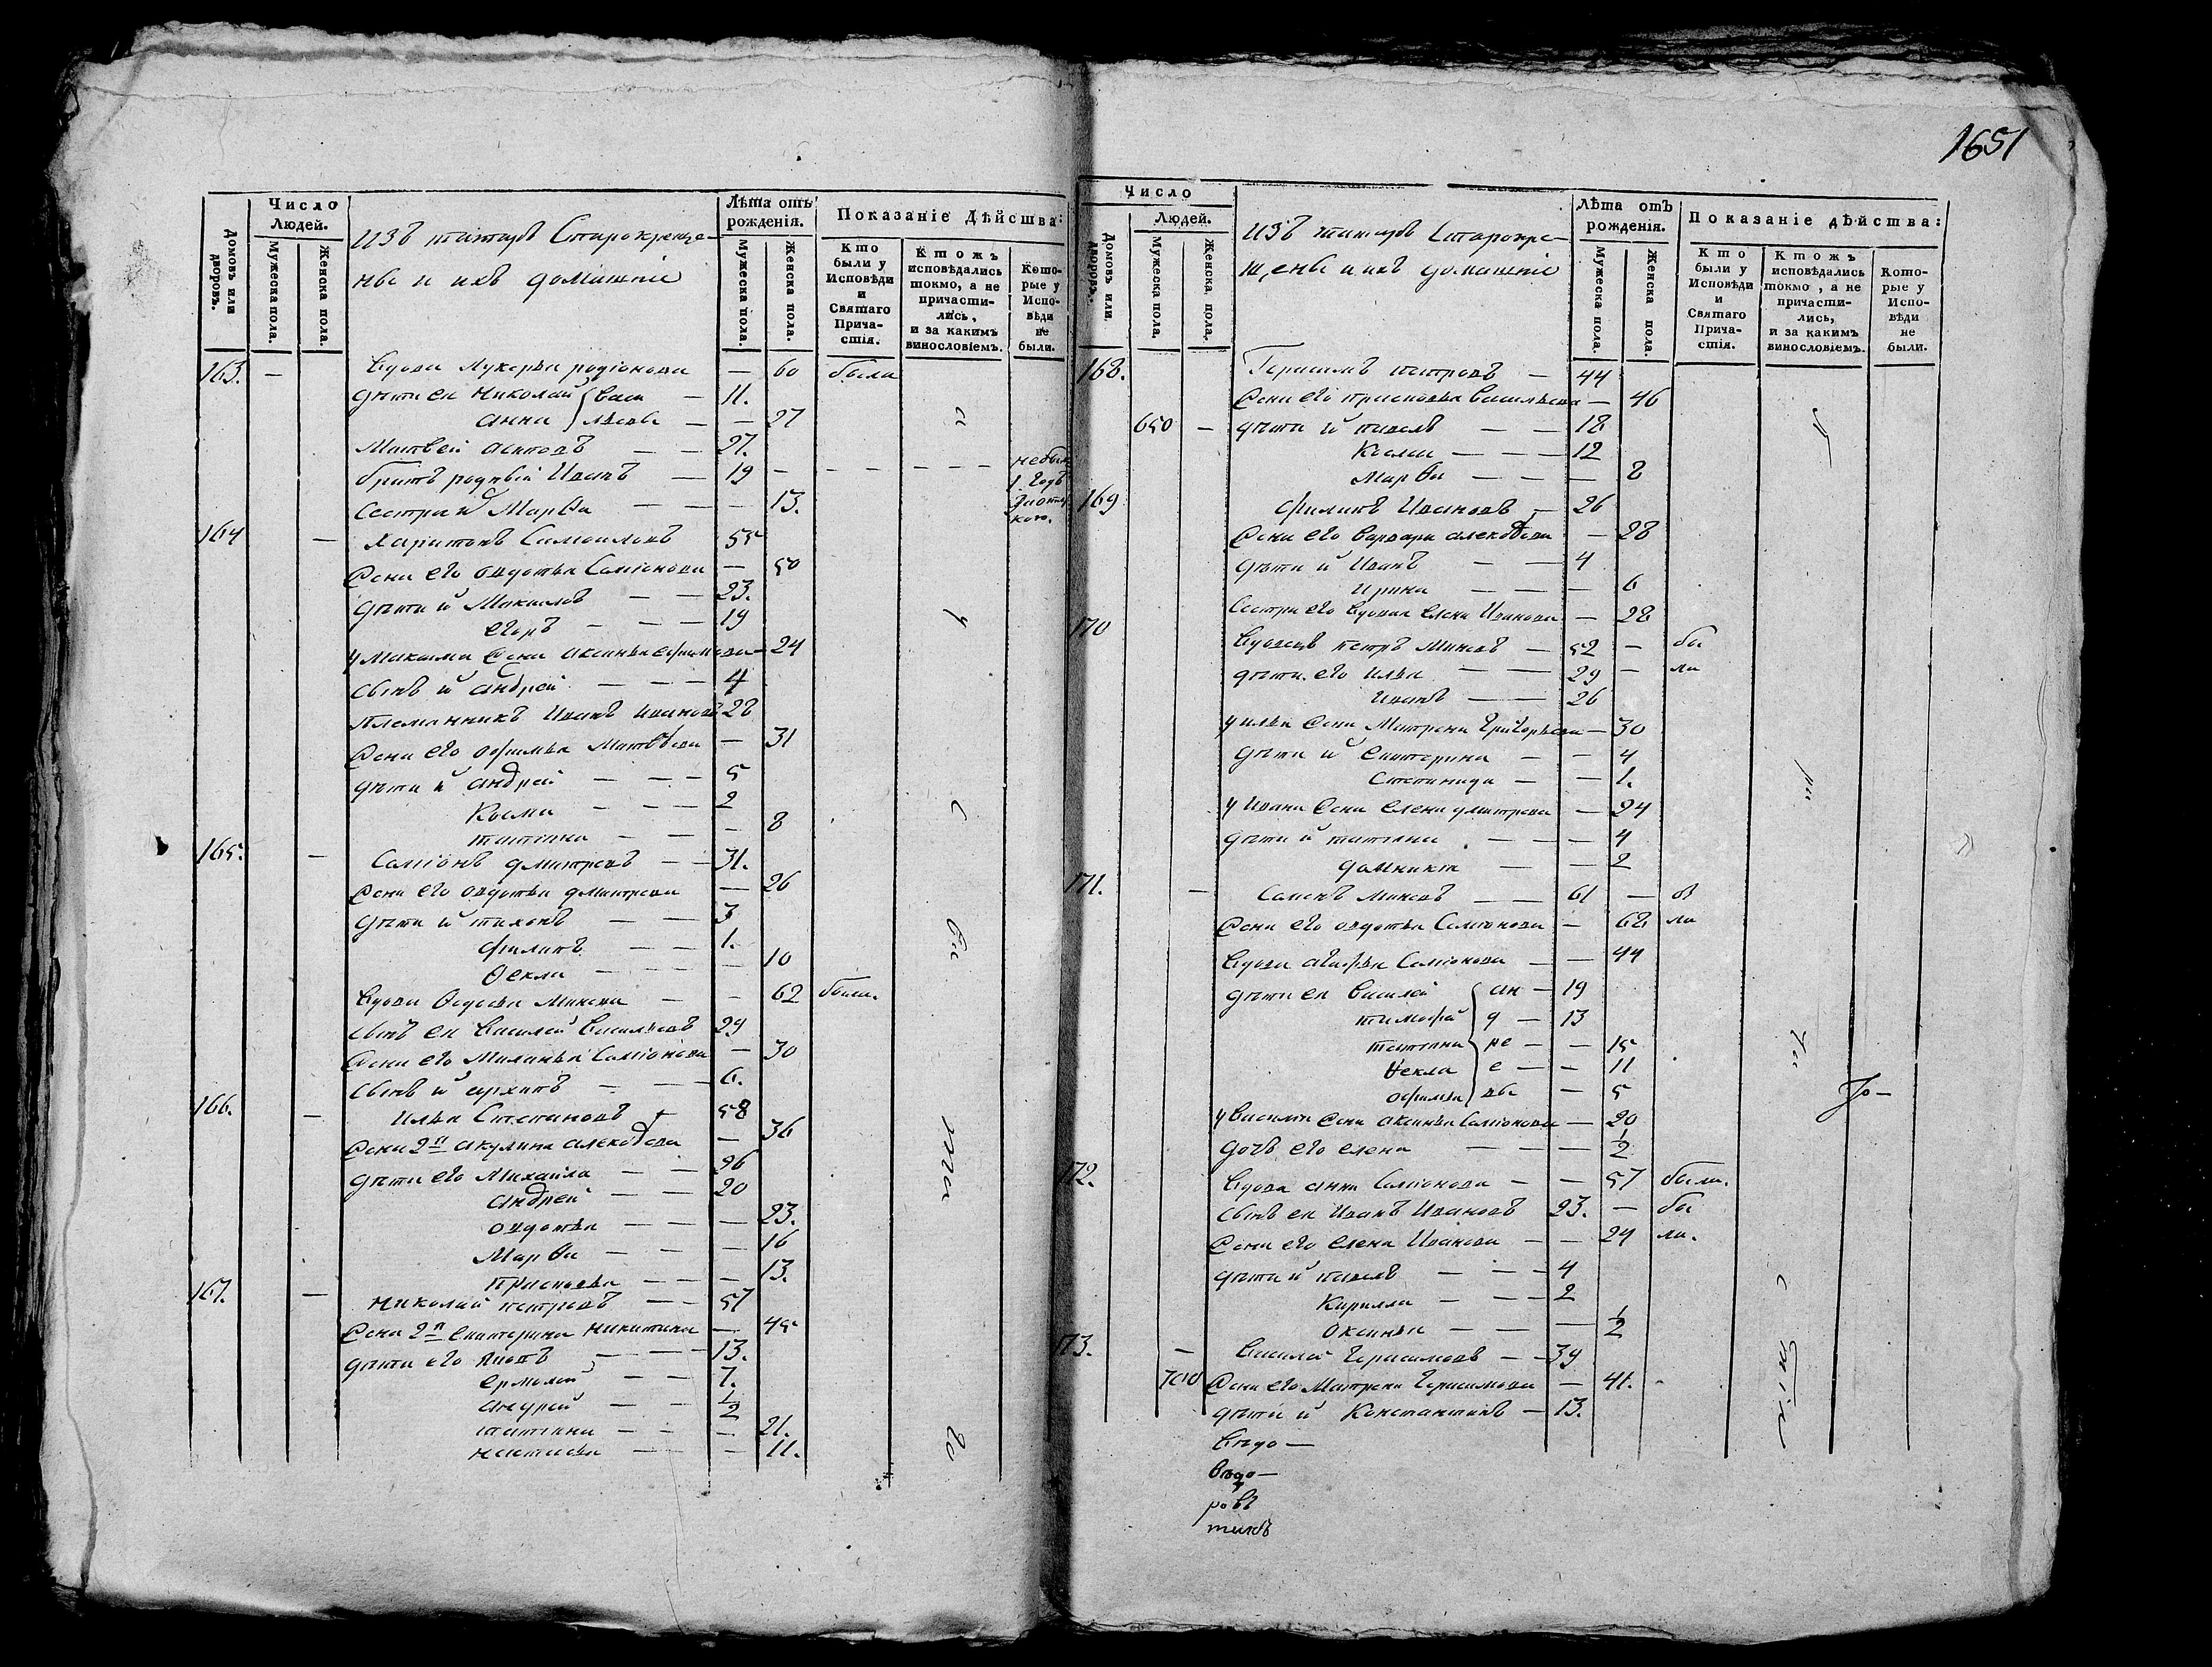 1651
Число
Людей.
Домовъ или дворовъ.
Мужеска пола.
Женска пола.
Изъ татаръ Старокреще-
ны и ихъ домашніе
Лѣта отъ
рожденія.
Мужеска пола.
Женска пола.
Показаніе Дѣйства:
Кто были у Исповѣди и Святаго Прича-стія.
Ктожъ исповѣдались токмо, а не причасти-лись, и за какимъ винословіемъ.
Кото-рые у Испо-вѣди не были.
163. — Вдова Лукерья родіонова — 60 была
дѣти ея Николай Васи — 11.
анна льевы — — 27
Матвей — — 27.
братъ родный Иванъ — 19 — — — — — — небыл
1. годъ
Сестра и Марѳа — — — 13.
164 — Харитонъ Самоиловъ 55
Жена его овдотья Саміонова — 50
дѣти и Максимъ — — 23.
егоръ — — — 19
у Максима жена аксинья — 24
сынъ и андрей — — — 4
племянникъ Иванъ Ивановъ 28
Жена его офимья Матвѣева — 31
дѣти и андрей — — — 5
Козма — — — 2
татіана — — — 8
165. — Саміонъ дмитревъ — — 31.
Жена его овдотья дмитрева — 26
дѣти и тихонъ — — 3
филипъ — — 1.
Ѳекла — — — 10
Вдова Ѳедосья Минева — — 62 была.
сынъ ея Василей Васильевъ 29
Жена его Маланья Саміонова — 30
сынъ и архипъ — — — 6.
166. — Илья Степановъ 58
Жена 2я акулина алексѣева — 36
дѣти его Михаила — — 26
андрей — — 20
овдотья — — — 23.
Марѳа — — — 16
Присковья — — — 13.
167. — Николай петровъ — — 57
Жена 2я екатерина Никитина — 45
дѣти его — — — 13.
ермолай — — 7.
андрей — — 1/2
татіана — — — 21.
настасья — — 11.
Число
Людей.
Домовъ или дворовъ.
Мужеска пола.
Женска пола.
Изъ татаръ Старокре-
щены и ихъ домашніе
Лѣта отъ
рожденія.
Мужеска пола.
Женска пола.
Показаніе дѣйства:
Кто были у Исповѣди и Святаго Прича-стія.
Ктожъ исповѣдались токмо, а не причасти-лись, и за какимъ винословіемъ.
Кото-рые у Испо-вѣди не были.
168. Герасимъ петровъ — 44
Жена его присковья Васильева — 46
650 — дѣти и павелъ — — 18
Козма — — — 12
Марѳа — — — 8
169 филипъ Ивановъ — 26
Жена его варвара алексѣева — 28
дѣти и Иванъ — — 4
ирина — — — 6
Сестра его вдовая елена Иванова — 28
170 Вдовецъ петръ Минеевъ — 52 — бы
дѣти его илья — — 29 — ли
Иванъ — — 26
у ильи жена Матрена Григорьева — 30
дѣти и екатерина — — 4
Степанида — — 1.
у Ивана жена елена дмитрева — 24
дѣти и татіана — — — 4
домникія — — 2
171. — Саменъ Минеевъ — — 61 — бы
Жена его овдотья Саміонова — 62 ли
Вдова агафья Саміонова — — 44
дѣти ея Василей ан — 19
тимофей д — 13
татіана ре — — 15
Ѳекла е — — 11
офимья вы — 5
у Василья жена аксинья Саміонова — 20
дочь его елена — — — 1/2
172. Вдова анна Саміонова — — 57 была.
сынъ ея Иванъ Ивановъ 23. — бы
Жена его елена Иванова — — 24 ли.
дѣти и павелъ — — — 4
Кирилла — — — 2
Оксинья — — — 1/2
173. — Василей Герасимовъ — — 39
700 Жена его Матрена Герасимова — 41.
дѣти и Константинъ — 13.